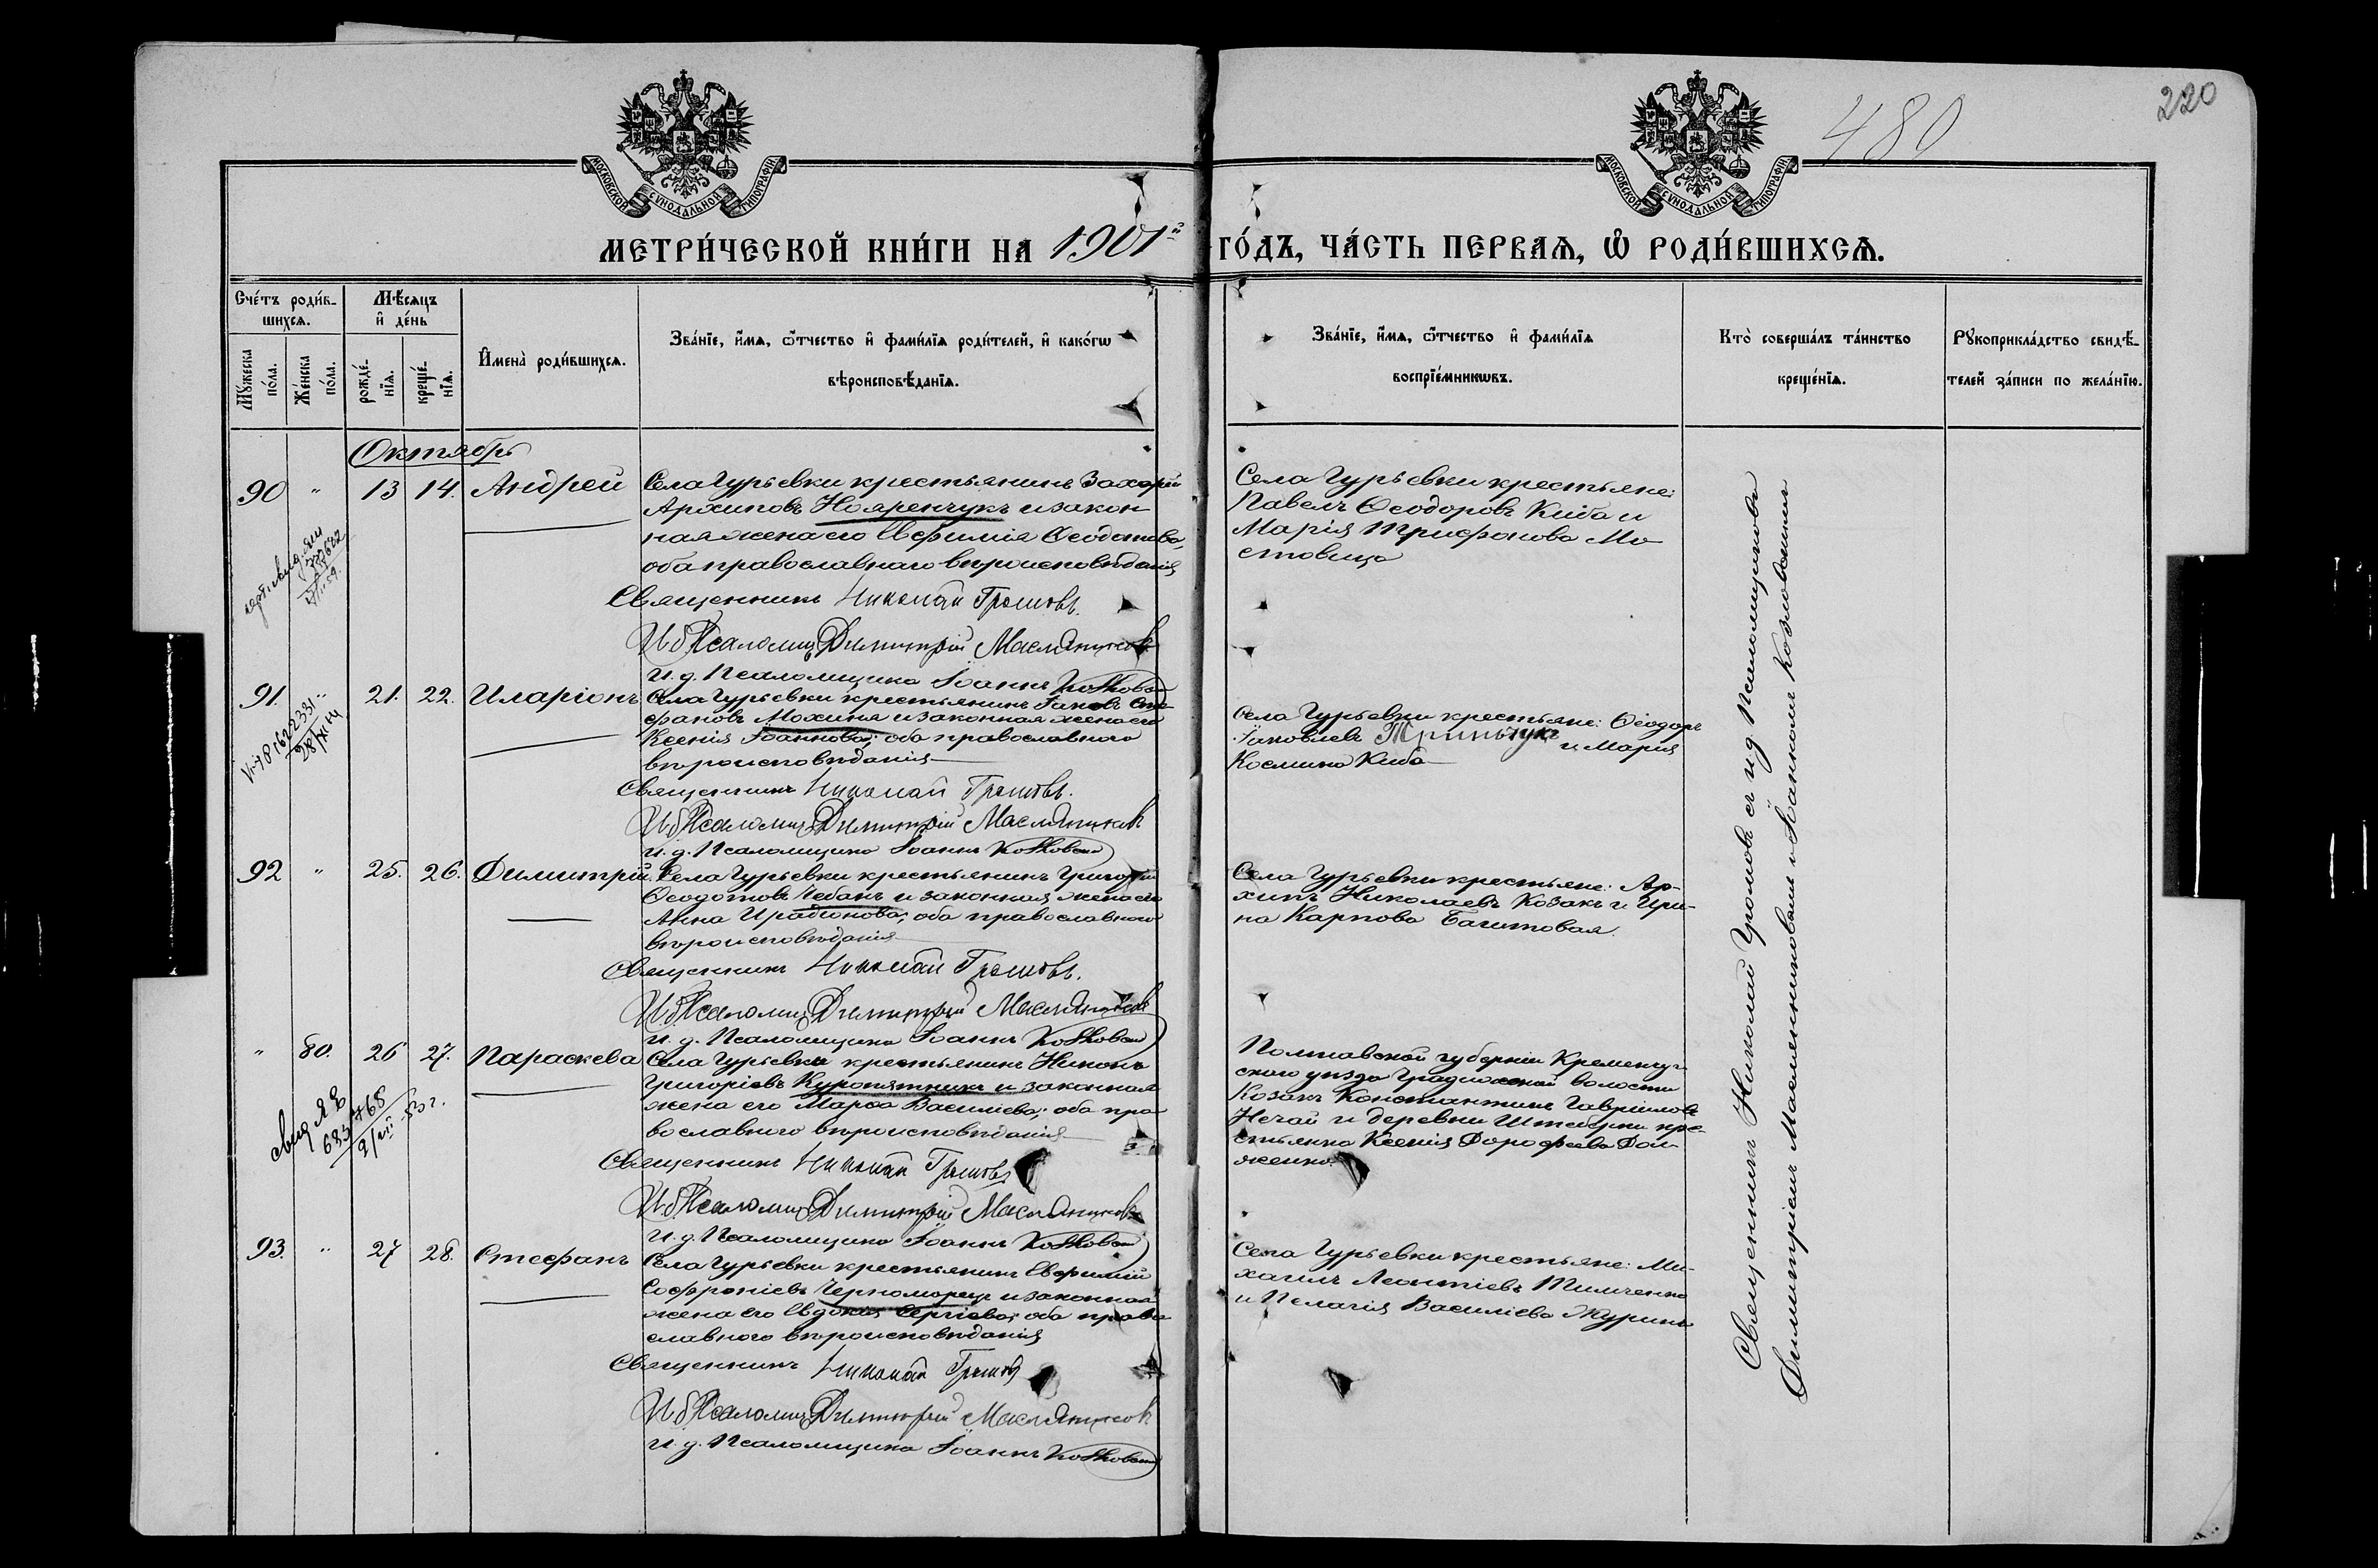 480
220
МОСКОВСКОЙ СѴНОДАЛЬНОЙ ТИПОГРАФІИ
МОСКОВСКОЙ СѴНОДАЛЬНОЙ ТИПОГРАФІИ
МЕТРИ́ЧЕСКОЙ КНИ́ГИ НА 1901й ГО́ДЪ, ЧА́СТЬ ПЕРВАЯ, Ѡ҆ РОДИ́ВШИХСЯ.
Сче́тъ роди́в-
шихся.
Мѣ́сяцъ
и҆ де́нь
Мꙋ́жеска по́ла.
Же́нска по́ла.
рожде́-
нїя.
креще́-
нїя.
И҆мена̀ роди́вшихся.
Зва́нїе, и҆́мя, ѻ҆́тчество и҆ фами́лїя роди́телей, и҆ како́гѡ
вѣроисповѣ́данїя.
Зва́нїе, и҆́мя, ѻ҆́тчество и҆ фами́лїя
воспрїе́мникѡвъ.
Кто̀ соверша́лъ та́инство
креще́нїя.
Рꙋкоприкла́дство свидѣ́-
телей за́писи по жела́нїю.
Октябрь
90 " 13 14. Андрей
Села Гурьевки крестьянинъ Захарій
Архиповъ Нояренчукъ и закон
ная жена его Евфимія Ѳеодотова,
оба православнаго вѣроисповѣданія
Священникъ Николай Громовъ.
И. д. Псаломщ. Димитрій Маслянников
И. д. Псаломщика Іоаннъ
Села Гурьевки крестьяне:
Павелъ Ѳеодоровъ Киба и
Марія Трифонова Мо
стовица
91. " 21. 22. Иларіонъ
Села Гурьевки крестьянинъ Іаковъ Сте-
фановъ Мохиня и законная жена его
Ксенія Іоаннова; оба православнаго
вѣроисповѣданія
Священникъ Николай Громовъ.
И. д. Псаломщ. Димитрій Маслянников
И. д. Псаломщика Іоаннъ
Села Гурьевки крестьяне: Ѳеодоръ
Іаковлевъ и Марія
Космина Киба
92 " 25. 26. Димитрій.
Села Гурьевки крестьянинъ Григорій
Ѳеодотовъ Чебанъ и законная жена его
Анна Ирадіонова; оба православнаго
вѣроисповѣданія
Священникъ Николай Громовъ.
И. д. Псаломщ. Димитрій Маслянников
И. д. Псаломщика Іоаннъ
Села Гурьевки крестьяне: Ар-
хипъ Николаевъ Козакъ и Ири-
на Карпова
" 80. 26 27. Параскева
Села Гурьевки крестьянинъ Никонъ
Григоріевъ Куропятникъ и законная
жена его Марѳа Василіева; оба пра
вославнаго вѣроисповѣданія
Священникъ Николай Громовъ
И. д. Псаломщ. Димитрій Маслянников
И. д. Псаломщика Іоаннъ
Полтавской губерніи Кременчуг-
скаго уѣзда Градижской волости
Козакъ Константинъ Гавріиловъ
Нечай и деревни кре-
стьянка Ксенія Дорофеева Дол-
женко.
93. " 27 28. Стефанъ
Села Гурьевки крестьянинъ Евфимій
Софроніевъ Черноморецъ и законная
жена его Евдокія Сергіева; оба право
славнаго вѣроисповѣданія
Священникъ Николай Громов
И. д. Псаломщ. Димитрій Маслянников
И. д. Псаломщика Іоаннъ
Села Гурьевки крестьяне: Ми-
хаилъ Леонтіевъ Тимченко
и Пелагія Василіева
Священникъ Николай Громовъ съ и. д. Псаломщиковъ
Димитріемъ Маслянниковымъ и Іоанномъ